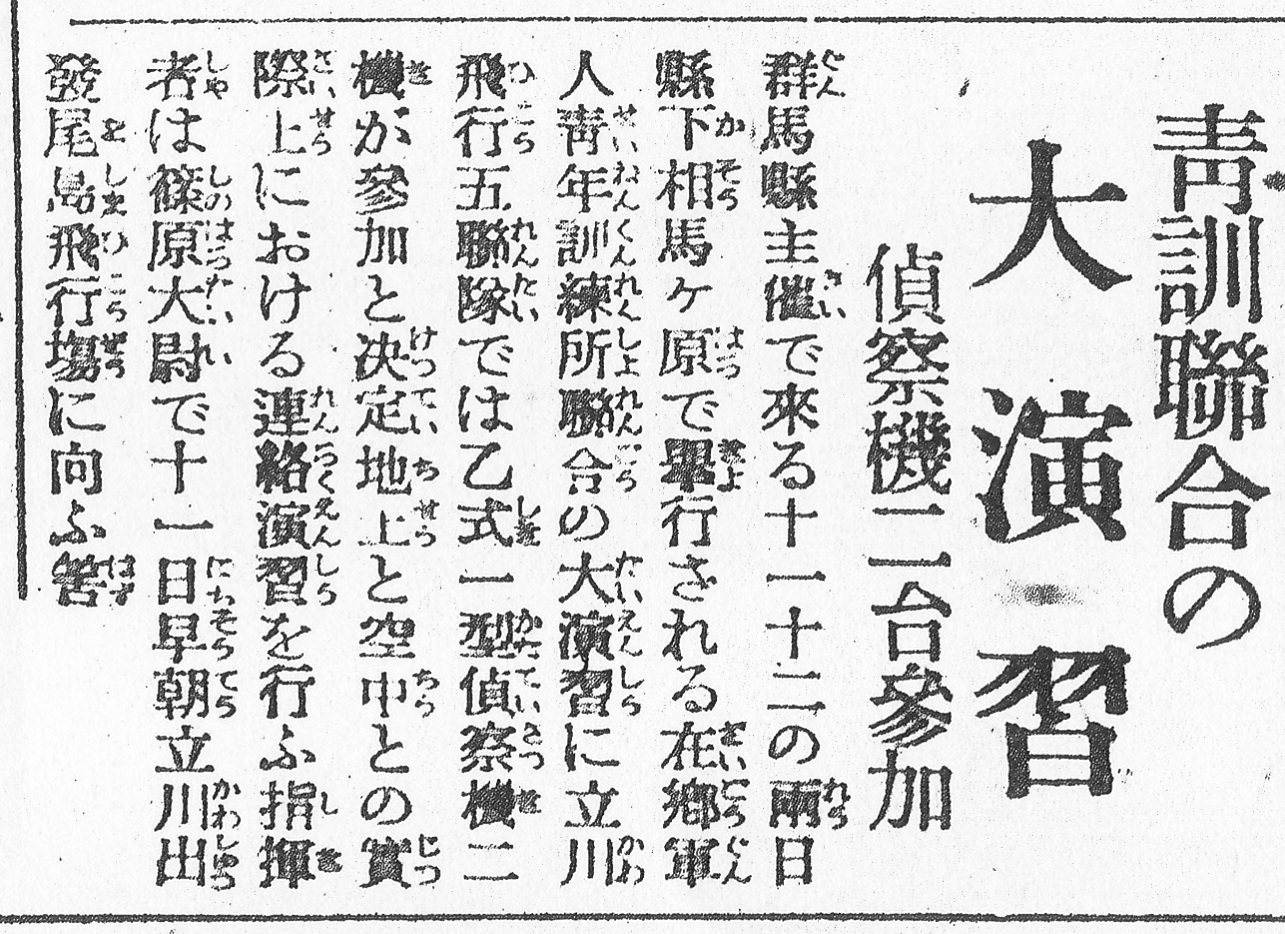 靑訓聯合の
大演習
偵察機二台參加
群馬縣主催で來る十一十二の兩日
縣下相馬ヶ原で擧行される在鄕軍
人靑年訓練所聯合の大演習に立川
飛行五聯隊では乙式一型偵察機二
機が參加と決定地上と空中との實
際上における連絡演習を行ふ指揮
者は篠原大尉で十一日早朝立川出
發尾島飛行場に向ふ筈